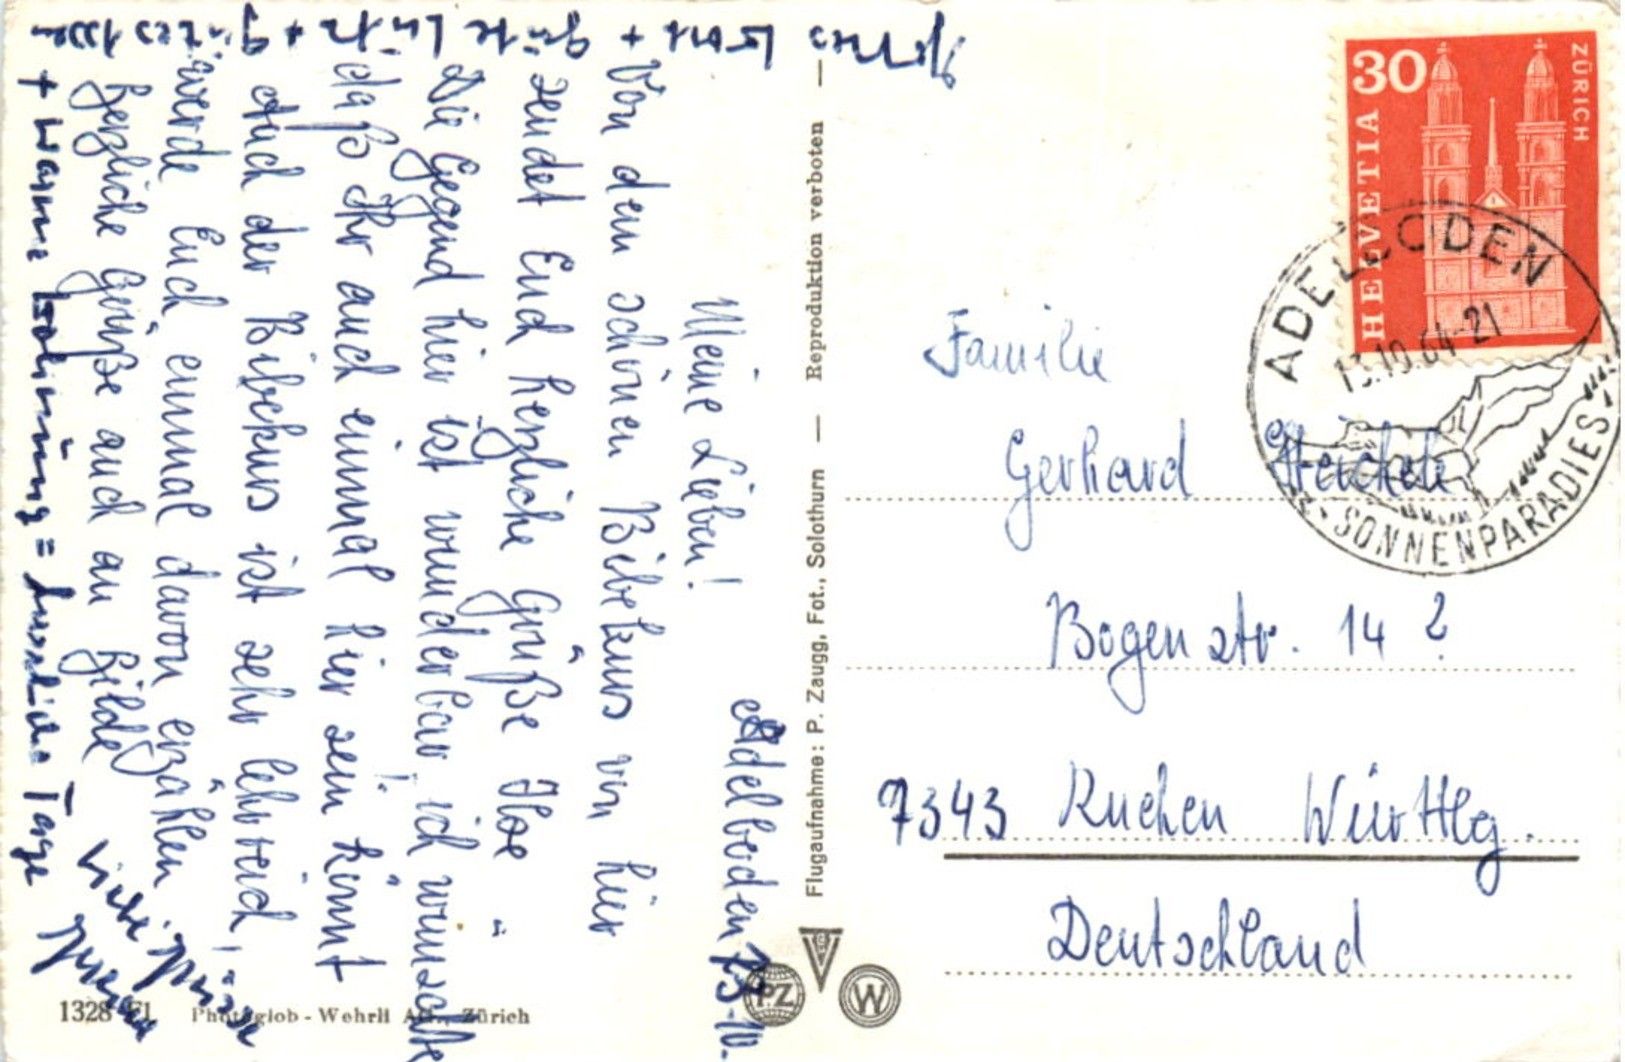 Adelboden 13.10.
Meine Lieben!
Von dem schönen Bibelkurs von hier
sendet Euch herzliche Grüße Ilse
Die Gegend hier ist wunderbar, ich wünschte
daß Ihr auch einmal hier sein könnt!
Auch der Bibelkurs ist sehr lehrreich,
werde Euch einmal davon erzählen
herzliche Grüße auch an Hilde
Viele Grüsse
Gottes Wort + gute Luft + gutes
+ warme = Tage
Familie
Gerhard
Bogenstr. 14 ?
7343 Kuchen Württbg.
Deutschland
30
HELVETIA
ZÜRICH
ADELBODEN
13.10.64-21
SONNENPARADIES
Flugaufnahme: P. Zaugg, Fot., Solothurn — Reproduktion verboten —
PZ
W
1328 Fl. Photoglob-Wehrli AG., Zürich